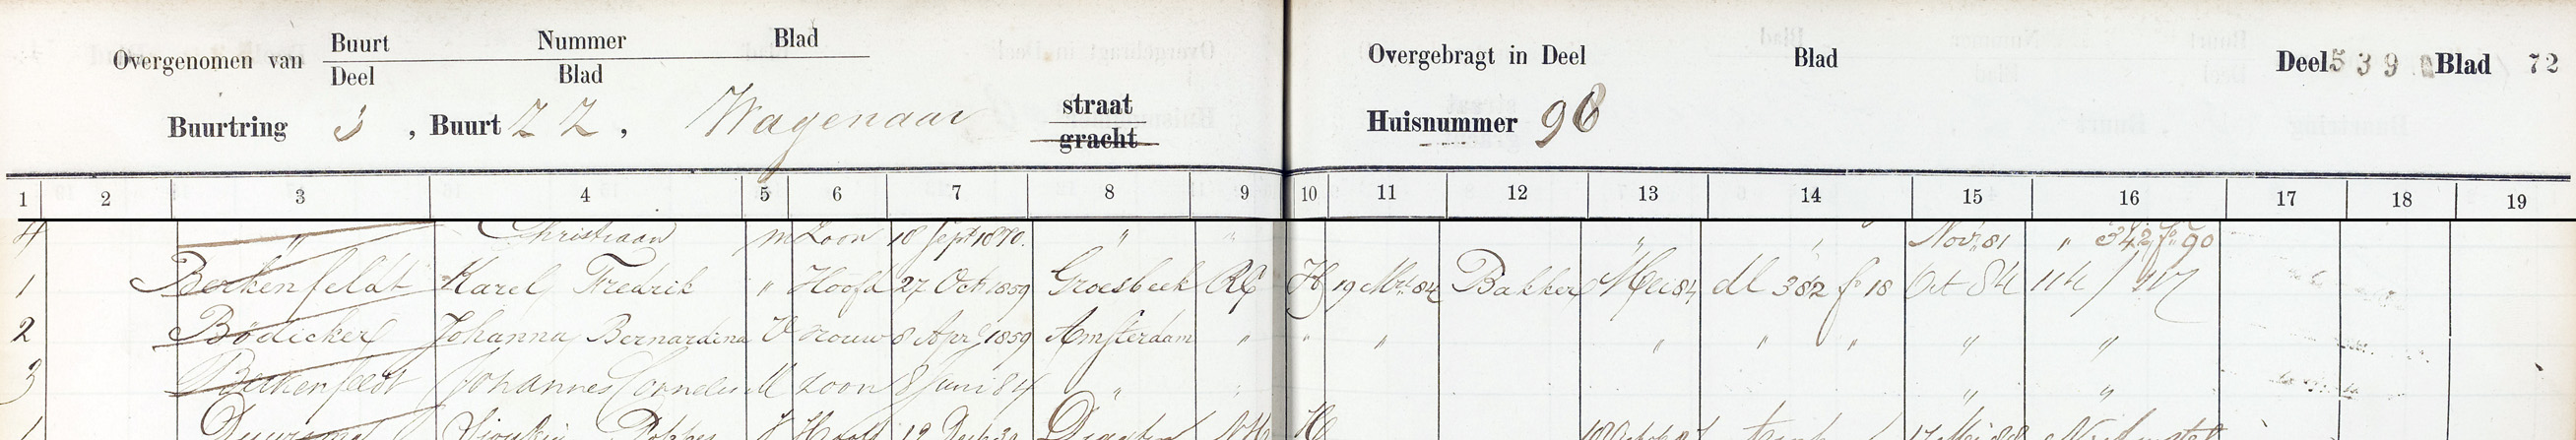 Buurt Nummer Blad
Overgenomen van
Deel Blad
Buurtring 3, Buurt ZZ, Wagenaar straat
gracht
Overgebragt in Deel Blad
Huisnummer 98
Deel 539 Blad 72
1 2 3 4 5 6 7 8 9 10 11 12 13 14 15 16 17 18 19
4 " Christiaan m Zoon 18 Sept 1870. " " " " Nov. 81 " 342 fo 90
1 Berkenfeldt Karel Fredrik " Hoofd 27 Oct 1859 Groesbeek RC H 19 Mrt 84 Bakker Mei 84 dl 382 fo 18 Oct 84 114 /
2 Bödicker Johanna Bernardina V vrouw 8 Apr 1859 Amsterdam " " " " " " " "
3 Berkenfeldt Johannes Cornelis M zoon 8 Juni 84 " " " "
1 Hoofd 19 H